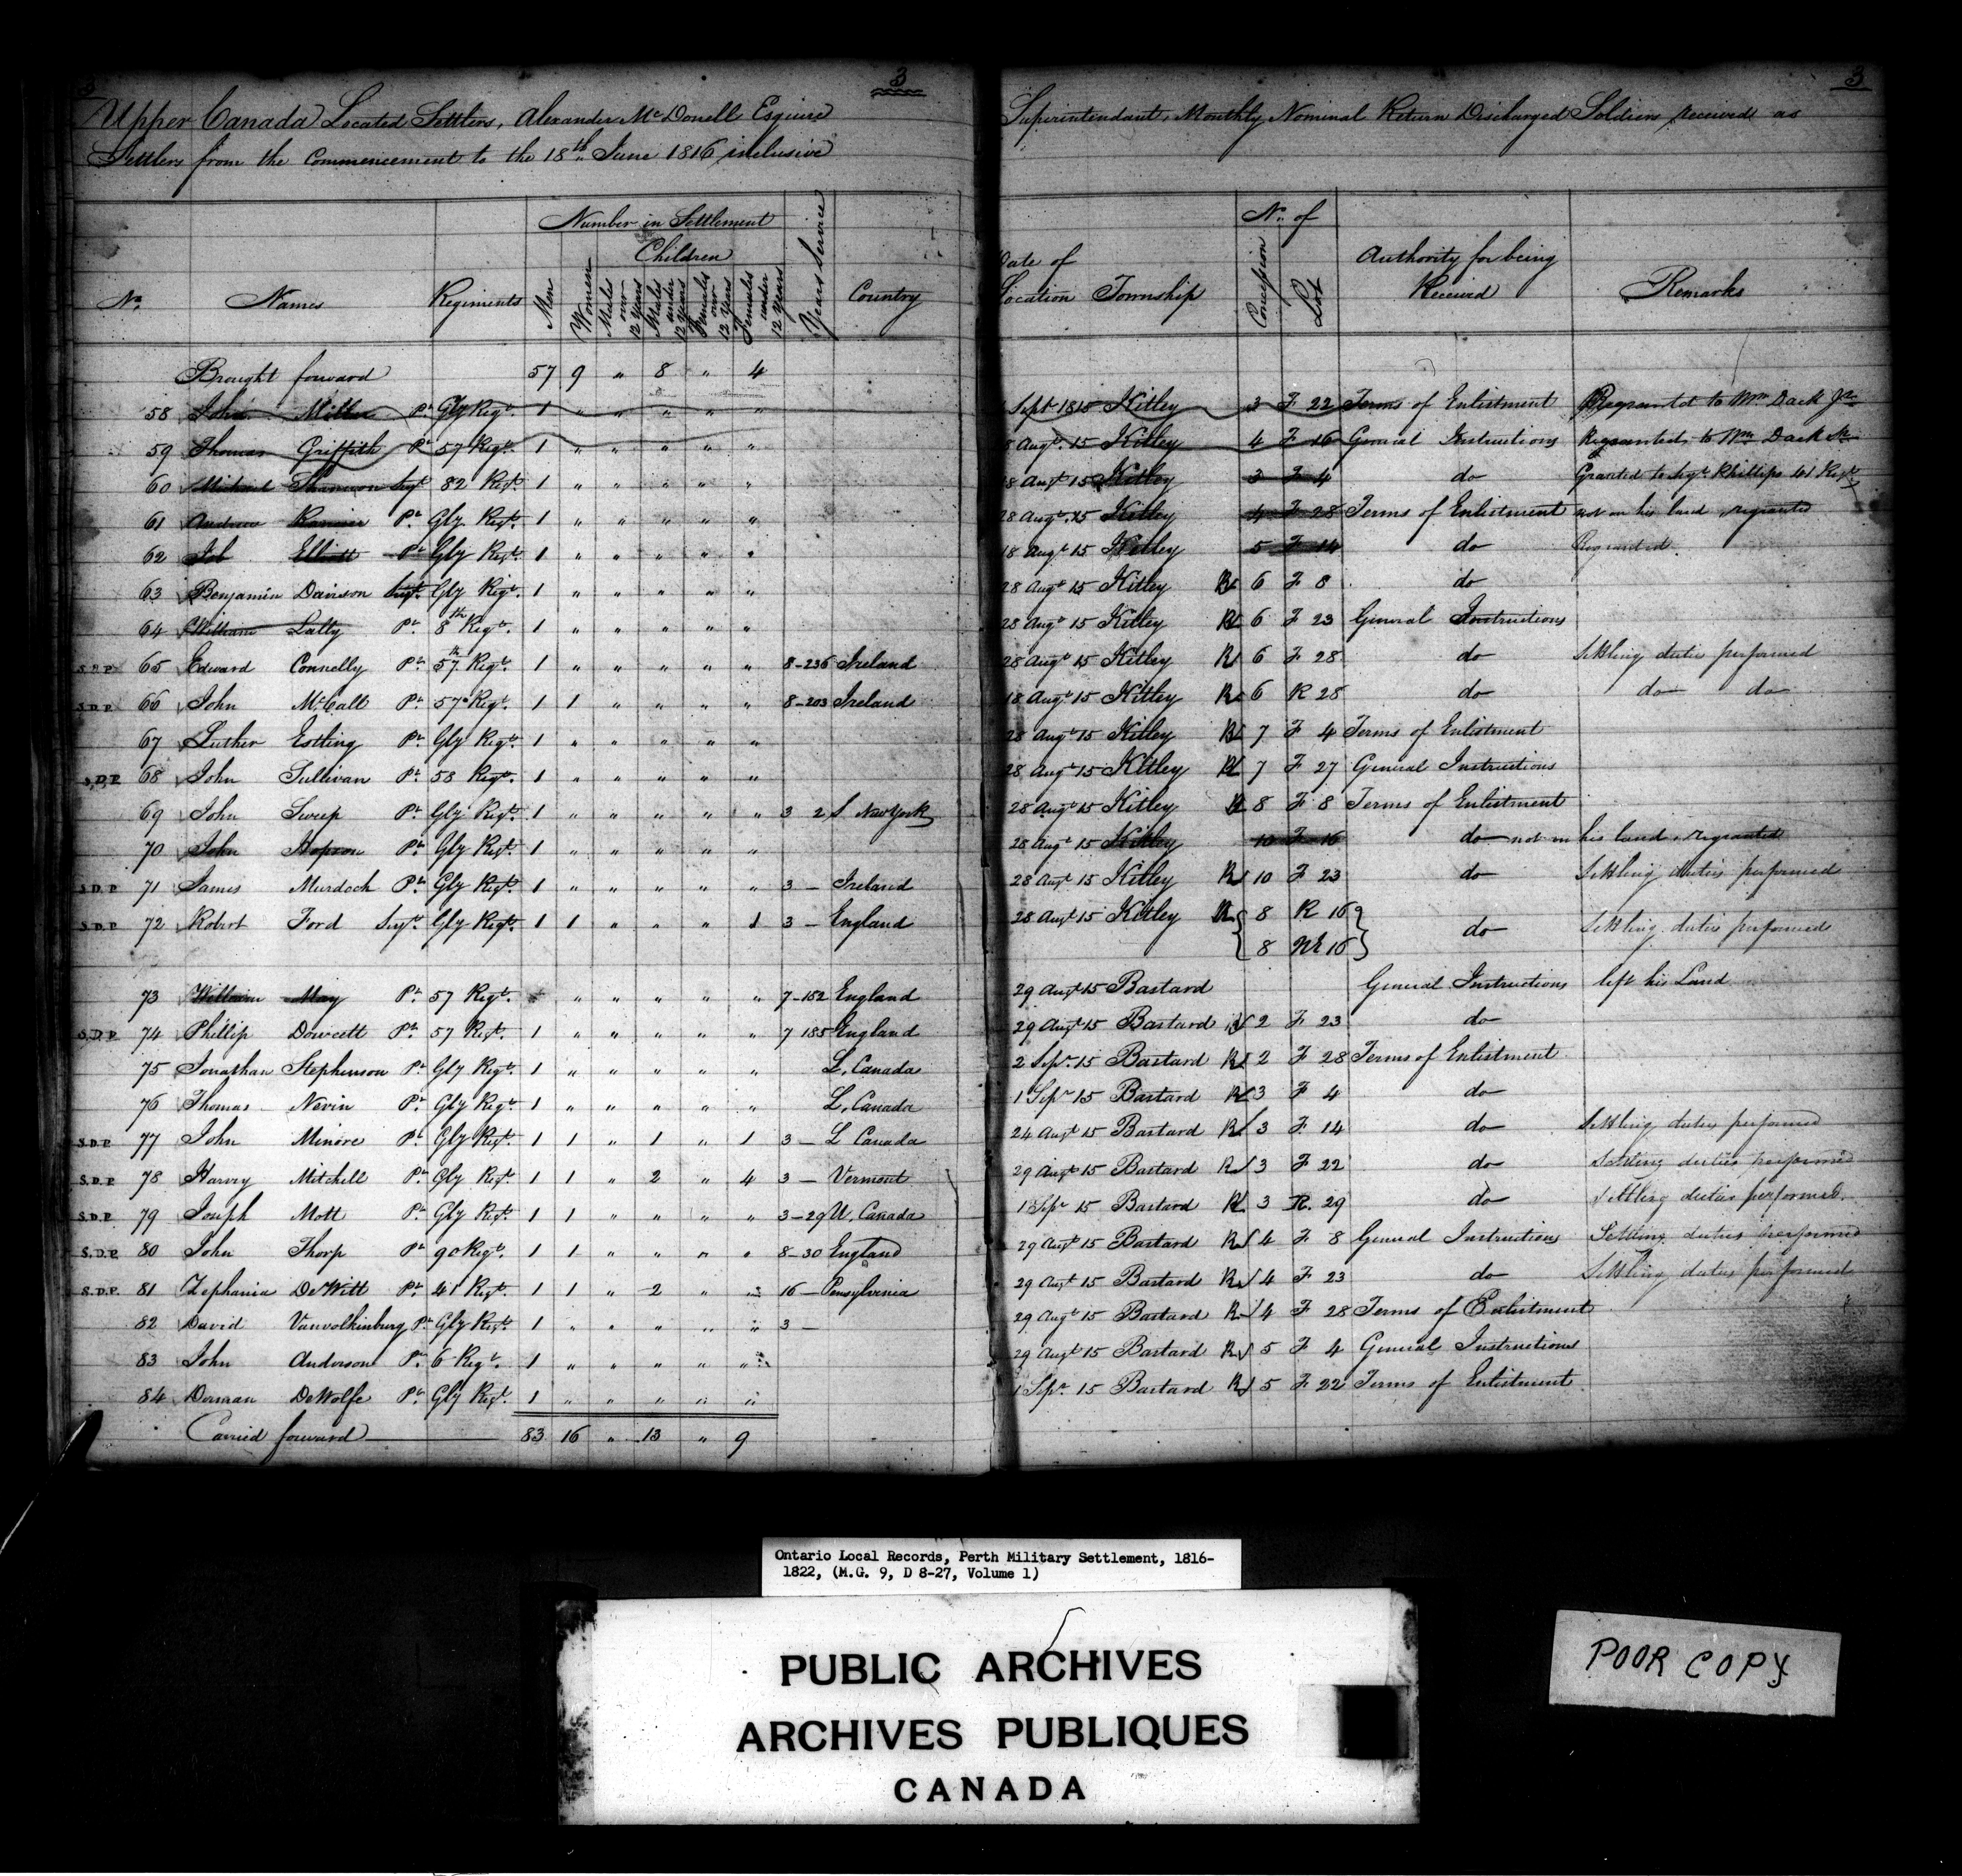 3 3
Upper Canada Located Settlers, Alexander McDonell Esquire Superintendant, Monthly Nominal Return Discharged Soldiers received as
Settlers from the Commencement to the 18th June 1816 inclusive
No. Names Regiments Number in Settlement Men Women Children Males over 12 Years Males under 12 Years Females over 12 Years Females under 12 Years Years Service Country Date of Location Township No. of Concession Lot Authority for being Received Remarks
Brought forward 57 9 " 8 " 4
58 John Miller Pt Gly Regt. 1 " " " " " Sept 1815 Kitley 3 F 22 Terms of Enlistment Regranted to Wm Dack Jr
59 Thomas Griffith Pt 57 Regt. 1 " " " " " 8 Augt. 15 Kitley 4 F 16 General Instructions Regranted to Wm Dack Sr
60 Michael Shannon Sergt 82 Regt. 1 " " " " " 8 Augt 15 Kitley 3 F 4 do Granted to Sergt. Phillips 41 Regt
61 Andrew Pt. Gly. Regt. 1 " " " " " 28 Augt. 15 Kitley 4 F 28 Terms of Enlistment not on his land, regranted
62 Job Elliott Pt Gly Regt. 1 " " " " " 18 Augt 15 Kitley 5 F 14 do Regranted.
63 Benjamin Davison Sergt. Gly Regt. 1 " " " " " 28 Augt 15 Kitley R 6 F 8 do
64 William Lally Pt. 8th Regt. 1 " " " " " 28 Augt 15 Kitley R 6 F 23 General Instructions
S.D.P. 65 Edward Connelly Pt. 57th Regt. 1 " " " " " 8-236 Ireland 28 Augt 15 Kitley R 6 F 28 do Settling duties performed
S.D.P. 66 John McCall Pt. 57 Regt. 1 1 " " " " 8-203 Ireland 18 Augt. 15 Kitley R 6 R 28 do do do
67 Luther Estling Pt. Gly Regt. 1 " " " " " 28 Augt 15 Kitley R 7 F 4 Terms of Enlistment
S.D.P. 68 John Sullivan Pt. 58 Regt. 1 " " " " " 28 Augt 15 Kitley R 7 F 27 General Instructions
69 John Sweep Pt. Gly Regt. 1 " " " " " 3 2 S New York 28 Augt 15 Kitley R 8 F 8 Terms of Enlistment
70 John Hopson Pt. Gly Regt. 1 " " " " " 28 Augt 15 Kitley 10 F 16 do not on his land, regranted
S.D.P. 71 James Murdoch Pt Gly Regt 1 " " " " " 3 — Ireland 28 Augt 15 Kitley R 10 F 23 do Settling duties performed
S.D.P. 72 Robert Ford Sergt. Gly Regt. 1 1 " " " 1 3 — England 28 Augt 15 Kitley R { 8 R 16 } do Settling duties performed
8 NE 16
73 William May Pt. 57 Regt. " " " " " 7-182 England 29 Augt 15 Bastard General Instructions left his Land
S.D.P. 74 Phillip Dowcett Pt. 57 Regt. 1 " " " " " 7 185 England 29 Augt 15 Bastard R 2 F 23 do
75 Jonathan Stephenson Pt. Gly Regt. 1 " " " " " L. Canada 2 Sepr. 15 Bastard R 2 F 28 Terms of Enlistment
76 Thomas Nevin Pt. Gly Regt. 1 " " " " " L. Canada 1 Sepr 15 Bastard R 3 F 4 do
S.D.P. 77 John Minore Pt. Gly Regt. 1 1 " 1 " 1 3 — L Canada 24 Augt 15 Bastard R 3 F 14 do Settling duties performed
S.D.P. 78 Harvey Mitchell Pt. Gly Regt. 1 1 " 2 " 4 3 — Vermont 29 Augt 15 Bastard R 3 F 22 do Settling duties performed
S.D.P. 79 Joseph Mott Pt. Gly Regt. 1 1 " " " " 3-29 U. Canada 1 Sepr 15 Bastard R 3 R. 29 do Settling duties performed.
S.D.P. 80 John Thorp Pt 90 Regt. 1 1 " " " " 8-30 England 29 Augt 15 Bastard R 4 F 8 General Instructions Settling duties performed
S.D.P. 81 Zephania DeWitt Pt. 41 Regt. 1 1 " 2 " " 16 — Pensylvinia 29 Augt 15 Bastard R 4 F 23 do Settling duties performed
82 David Vanvolkinburg Pt. Gly Regt. 1 " " " " " 3 — 29 Augt 15 Bastard R 4 F 28 Terms of Enlistment
83 John Anderson Pt. 6 Regt. 1 " " " " " 29 Augt 15 Bastard R 5 F 4 General Instructions
84 Dorman DeWolfe Pt. Gly Regt. 1 " " " " " 1 Sepr 15 Bastard R 5 F 22 Terms of Enlistment
Carried forward 83 16 " 13 " 9
Ontario Local Records, Perth Military Settlement, 1816-
1822, (M.G. 9, D 8-27, Volume 1)
PUBLIC ARCHIVES
ARCHIVES PUBLIQUES
CANADA
POOR COPY